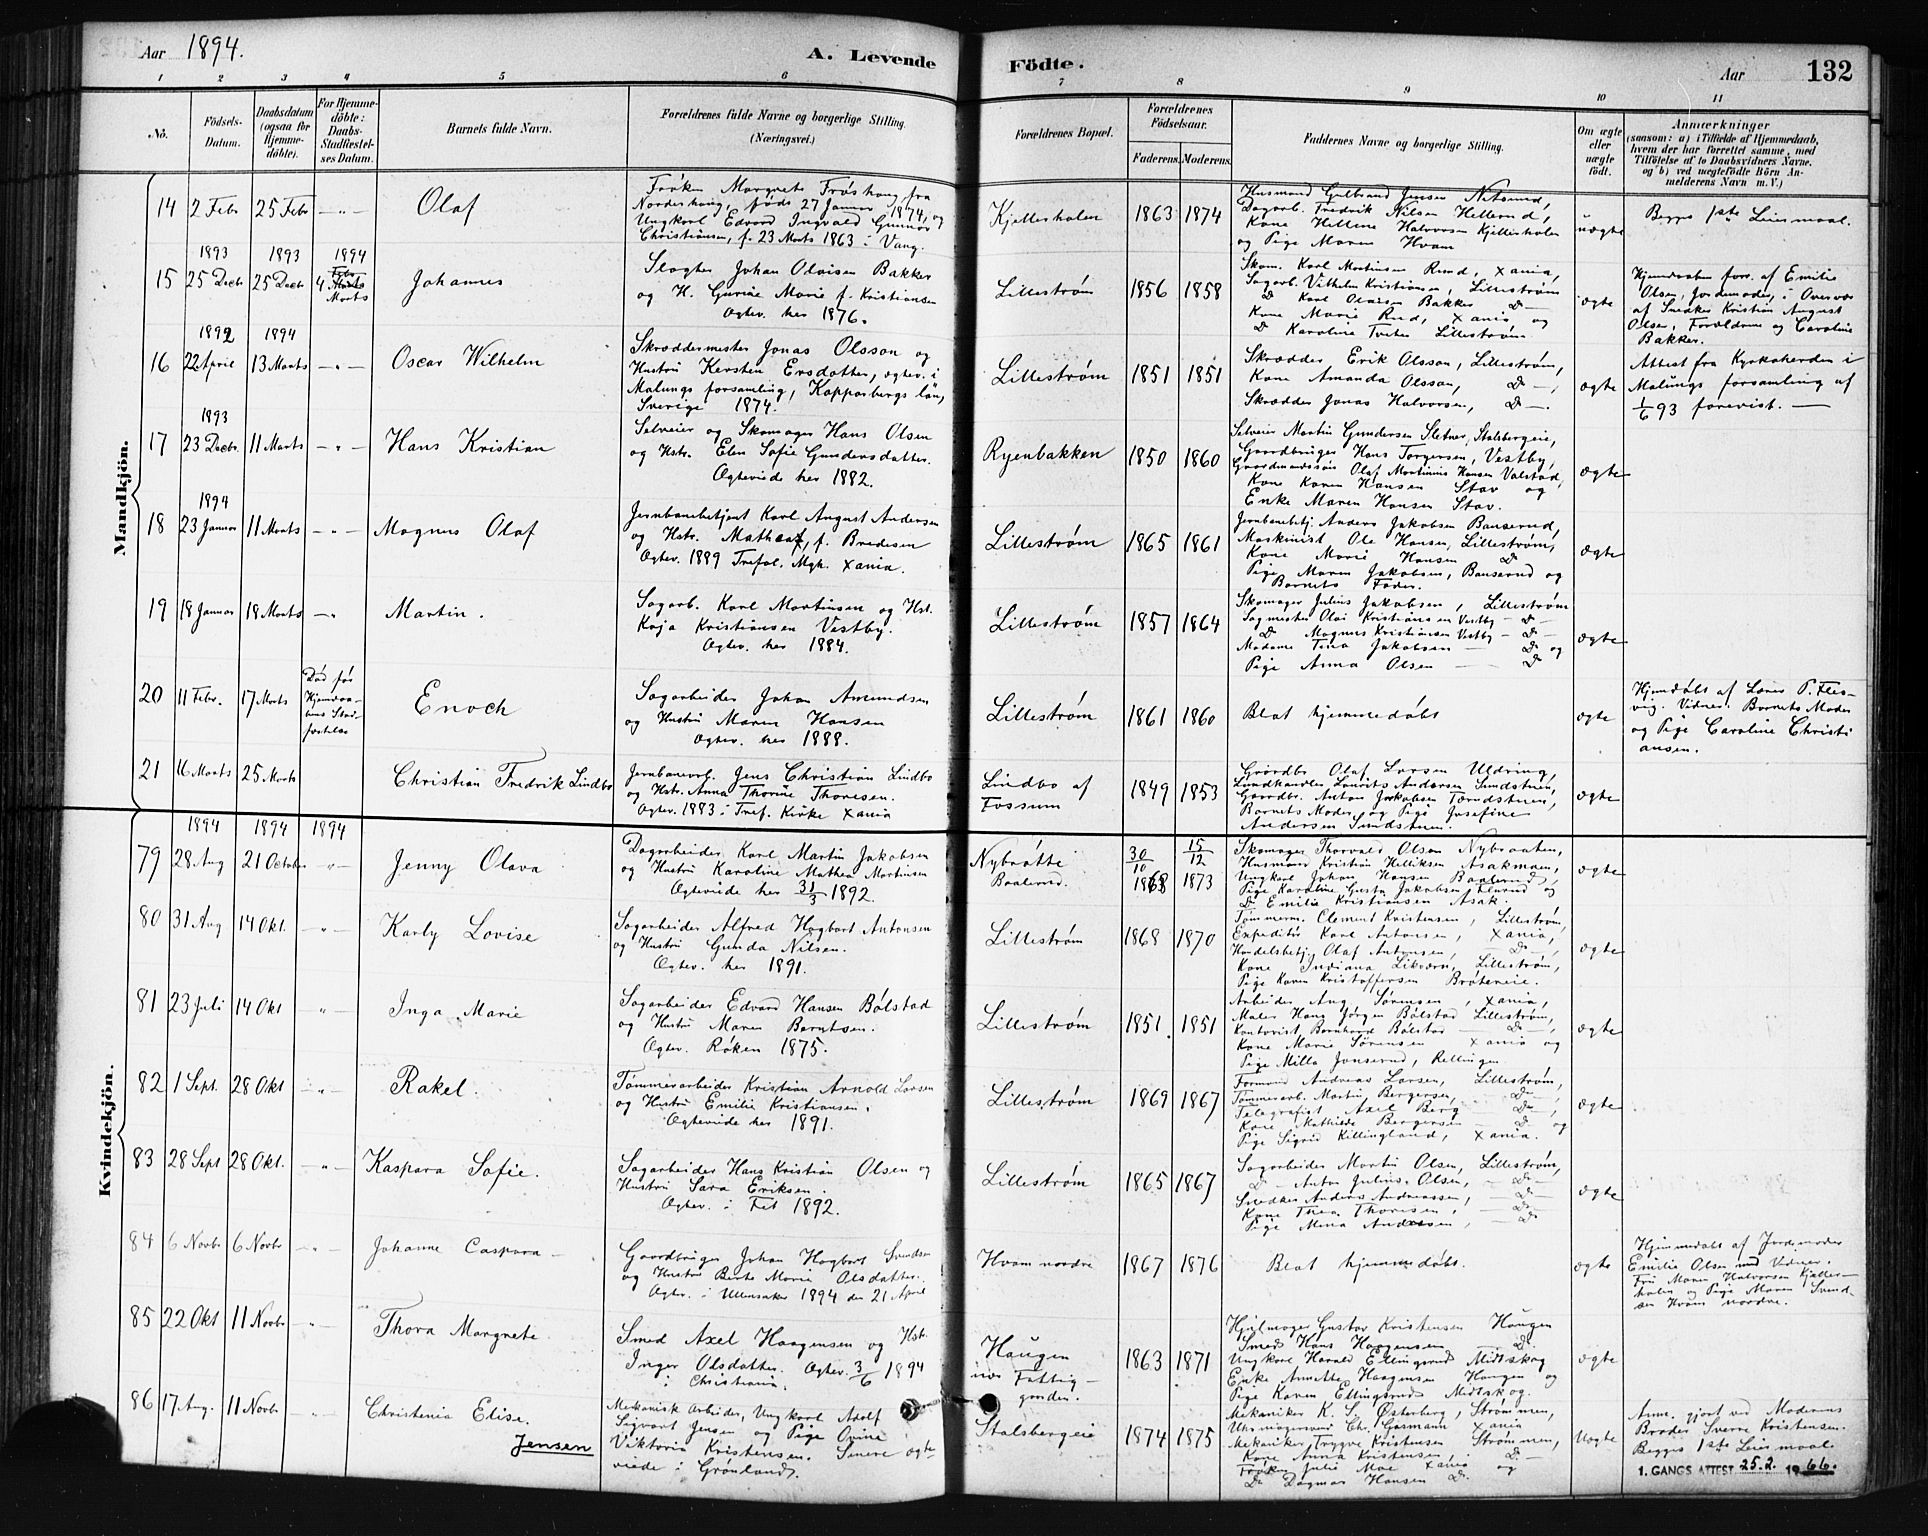 Aar 1894.
A. Levende Födte.
Aar
132
1 2 3 4 5 6 7 8 9 10 11
No.
Födsels-Datum.
Daabsdatum (ogsaa for Hjemme-döbte).
For Hjemme-döbte: Daabs-Stadfæstel-ses Datum.
Barnets fulde Navn.
Forældrenes fulde Navne og borgerlige Stilling. (Næringsvei.)
Forældrenes Bopæl.
Forældrenes Födselsaar.
Faderens. Moderens.
Faddernes Navne og borgerlige Stilling.
Om ægte eller uægte födt.
Anmærkninger
(saasom: a) i Tilfælde af Hjemmedaab, hvem der har forrettet samme, med Tilföielse af to Daabsvidners Navne. og b) ved uægtefödte Börn An-melderens Navn m. V.)
Mandkjön.
14 2 Febr 25 Febr — " — Olaf
Frøken Margrete Frøshaug fra
Norderhoug, føds 27 Januar 1874, og
Ungkarl Edvard Ingvald Gunnar
Christiansen, f. 23 Marts 1863 i Vang.
Kjellerholen 1863 1874
Husmand Gulbrand Jensen Nitsund,
Dagarb. Fredrik Nilsen Hellerud,
Kone Hellene Halvorsen Kjellerholen
og Pige Maren Hvam
uægte
Begges 1ste Leiermaal.
1893 1893 1894
15 25 Decbr 25 Decbr 4 Marts Johannes
Slagter Johan Olaisen Bakker
og H. Gurine Marie f. Kristiansen
Ægtev. her 1876.
Lillestrøm 1856 1858
Skom. Karl Martinsen Rud, Xania,
Sagarb. Vilhelm Kristiansen, Lillestrøm
D Karl Olaisen Bakker D—
Kone Marie Rud, Xania og
D Karoline Tveter Lillestrøm.
ægte
Hjemdaaben forr. af Emilie
Olsen, Jordemoder, i Overvær
af Snedker Kristian August
Olsen, Forældrene og Caroline
Bakker.
1892 1894
16 22 April 13 Marts — " — Oscar Wilhelm
Skræddermester Jonas Olsson og
Hustru Kersten Ersdotter, ægtev. i
Malungs forsamling, Kopparbergs län,
Sverige 1874.
Lillestrøm 1851 1851
Skrædder Erik Olsson, Lillestrøm,
Kone Amanda Olsson, D—,
Skrædder Jonas Halvorsen, D—.
ægte
Attest fra Kyrkoherden i
Malungs forsamling af
1/6 93 forevist. —
1893
17 23 Decbr. 11 Marts — " — Hans Kristian
Selveier og Skomager Hans Olsen
og Hstr. Elen Sofie Gundersdatter.
Ægteviede her 1882.
Ryenbakken 1850 1860
Selveier Martin Gundersen Sletner, Stalsbergeie,
Gaardbruger Hans Torgersen, Vestby,
Gaardmandssøn Olaf Martinius Hansen Valstad,
Kone Karen Hansen Stav og
Enke Maren Hansen Stav.
ægte
1894
18 23 Januar 11 Marts — " — Magnus Olaf
Jernbanebetjent Karl August Andersen
og Hstr. Mathea, f. Bredesen
Ægtev. 1889 Trefol. Mgh. Xania.
Lillestrøm 1865 1861
Jernbanebetj. Anders Jakobsen Banserud,
Maskinist Ole Hansen, Lillestrøm,
Kone Marie Hansen D—
Pige Maren Jakobsen, Banserud og
Barnets Fader.
ægte
19 18 Januar 18 Marts — " Martin.
Sagarb. Karl Martinsen og Hst.
Kaja Kristiansen Vestby.
Ægtev. her 1884.
Lillestrøm 1857 1864
Skomager Julius Jakobsen, Lillestrøm
Sagmester Olai Kristiansen Vestby — D—
D Magnus Kristiansen Vestby — D—
Madame Tina Jakobsen — D og
Pige Anna Olsen — D
ægte
20 11 Febr. 17 Marts Død før Hjemdaa-bens Stad-fæstelse Enoch
Sagarbeider Johan Amundsen
og Hustru Maren Hansen
Ægtev. her 1888.
Lillestrøm 1861 1860 Blot hjemmedøbt ægte
Hjemdøbt af Lærer P. Fles-
vig. Vidner. Barnets Moder
og Pige Caroline Christi
ansen.
21 16 Marts 25 Marts Christian Fredrik Lindbo
Jernbanearb. Jens Christian Lindbo
og Hstr. Anna Thorine Thoresen.
Ægtev. 1883 i Tref. Kirke Xania
Lindbo af Fossum 1849 1853
Gaardbr. Olaf Larsen Uldring,
Landhandler Laurits Andersen Sundstuen,
Gaardbr. Anton Jakobsen Tærudstuen,
Barnets Moder og Pige Josefine
Andersen Sundstuen.
ægte
Kvindekjön.
1894 1894 1894
79 28 Aug 21 October " — Jenny Olava
Dagarbeider Karl Martin Jakobsen
og Hustru Karoline Mathea Martinsen
Ægteviede her 31/3 1892.
Nybrøtte Baalerud. 30/10 1868 15/12 1873
Skomager Thorvald Olsen Nybraaten,
Husmand Kristian Helliksen Asakmoen,
Ungkarl Johan Hansen Baalerud,
Pige Karoline Gusta Jakobsen Tærud og
D Emilie Kristiansen Asak.
ægte
80 31 Aug 14 Okt. — " — Karly Lovise
Sagarbeider Alfred Hagbart Antonsen
og Hustru Gunda Nilsen.
Ægtev. her 1891.
Lillestrøm 1868 1870
Tømmerm. Clement Kristensen, Lillestrøm,
Expeditør Karl Antonsen, Xania,
Handelsbetj. Olaf Antonsen, — D—,
Kone Indiana Likværn, Lillestrøm,
Pige Karen Kristoffersen Bråteneie.
ægte
81 23 Juli 14 Okt " — Inga Marie
Sagarbeider Edvard Hansen Bølstad
og Hustru Maren Berntsen.
Ægtev. Røken 1875.
Lillestrøm 1851. 1851
Arbeider Aug Sørensen, Xania,
Maler Hans Jørgen Bølstad Lillestrøm,
Kontorist Bernhard Bølstad — D—,
Kone Marie Sørensen Xania og
Pige Milla Jonserud, Rellingen
ægte
82 1 Sept. 28 Okt " — Rakel.
Tømmerarbeider Kristian Arnold Larsen
og Hustru Emilie Kristiansen.
Ægteviede her 1891.
Lillestrøm 1869 1867
Formand Andreas Larsen, Lillestrøm,
Tømmerarb. Martin Bergersen, — D—,
Telegrafist Axel Berg — D—,
Kone Mathilde Bergersen — D og
Pige Sigrid Killingland, Xania.
ægte
83 28 Sept 28 Okt. " — Kaspara Sofie.
Sagarbeider Hans Kristian Olsen og
Hustru Sara Eriksen
Ægtev. i Fet 1892.
Lillestrøm 1865 1867
Sagarbeider Martin Olsen, Lillestrøm,
D — Anton Julius Olsen, — D—
Snedker Anders Andreassen, — D—
Kone Thea Thoresen, — D—
Pige Mina Andersen, — D
ægte
84 6 Novbr 6 Novbr — " — Johanne Caspara —
Gaardbruger Johan Hagbart Svendsen
og Hustru Berte Marie Olsdatter.
Ægtev. i Ullensaker 1894 den 21 April
Hvam nordre 1867 1876 Blot hjemmedøbt. ægte
Hjemmedøbt af Jordemoder
Emilie Olsen med Vidner.
Fru Maren Halvorsen Kjeller-
holen og Pige Maren Svend-
sen Hvam nordre.
85 22 Okt 11 Novbr " — Thora Margrete.
Smed Axel Haagensen og Hstr.
Inger Olsdatter. Ægtev. 3/6 1894
i Christiania.
Haugen 1863 1871
Hjulmager Gustav Kristensen Haugen
Smed Hans Haagensen D.
Ungkarl Harald Ellingsrud Midtskog
Enke Annette Haagensen Haugen og
Pige Karen Ellingsrud Midtskog.
ægte
86 17 Aug. 11 Novbr — " — Christenia Elise. Jensen
Mekanisk Arbeider, Ungkarl Adolf
Sigvart Jensen og Pige Ovine
Viktoria Kristensen. Senere ægte
viede i Grønland.
Stalsbergeie 1874 1875
Mekaniker K. S. Østerberg, Strømmen,
Chr. Gasmann Xania
Mekaniker Trygve Kristensen Strømmen,
Kone Anna Kristensen D—
Frøken Julie Moe Xania og
D Dagmar Hansen D.
Uægte
Anm. gjort ved Moderens
Broder Sverre Kristensen.
Begges 1ste Leiermaal.
1. GANGS ATTEST 25.2. 1966.